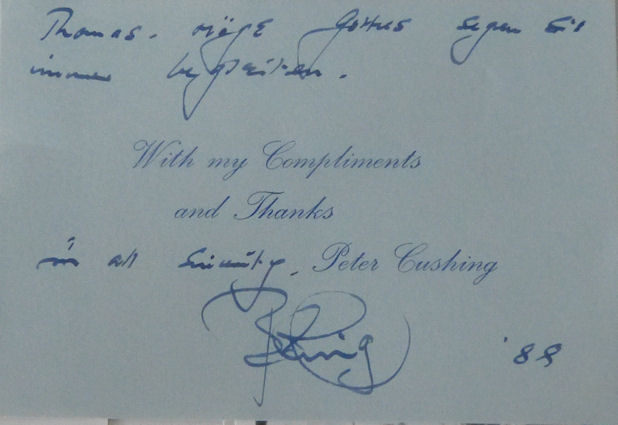 Thomas. möge Gottes Segen Sie
immer begleiten.
With my Compliments
and Thanks
in all sincerity, Peter Cushing
'88